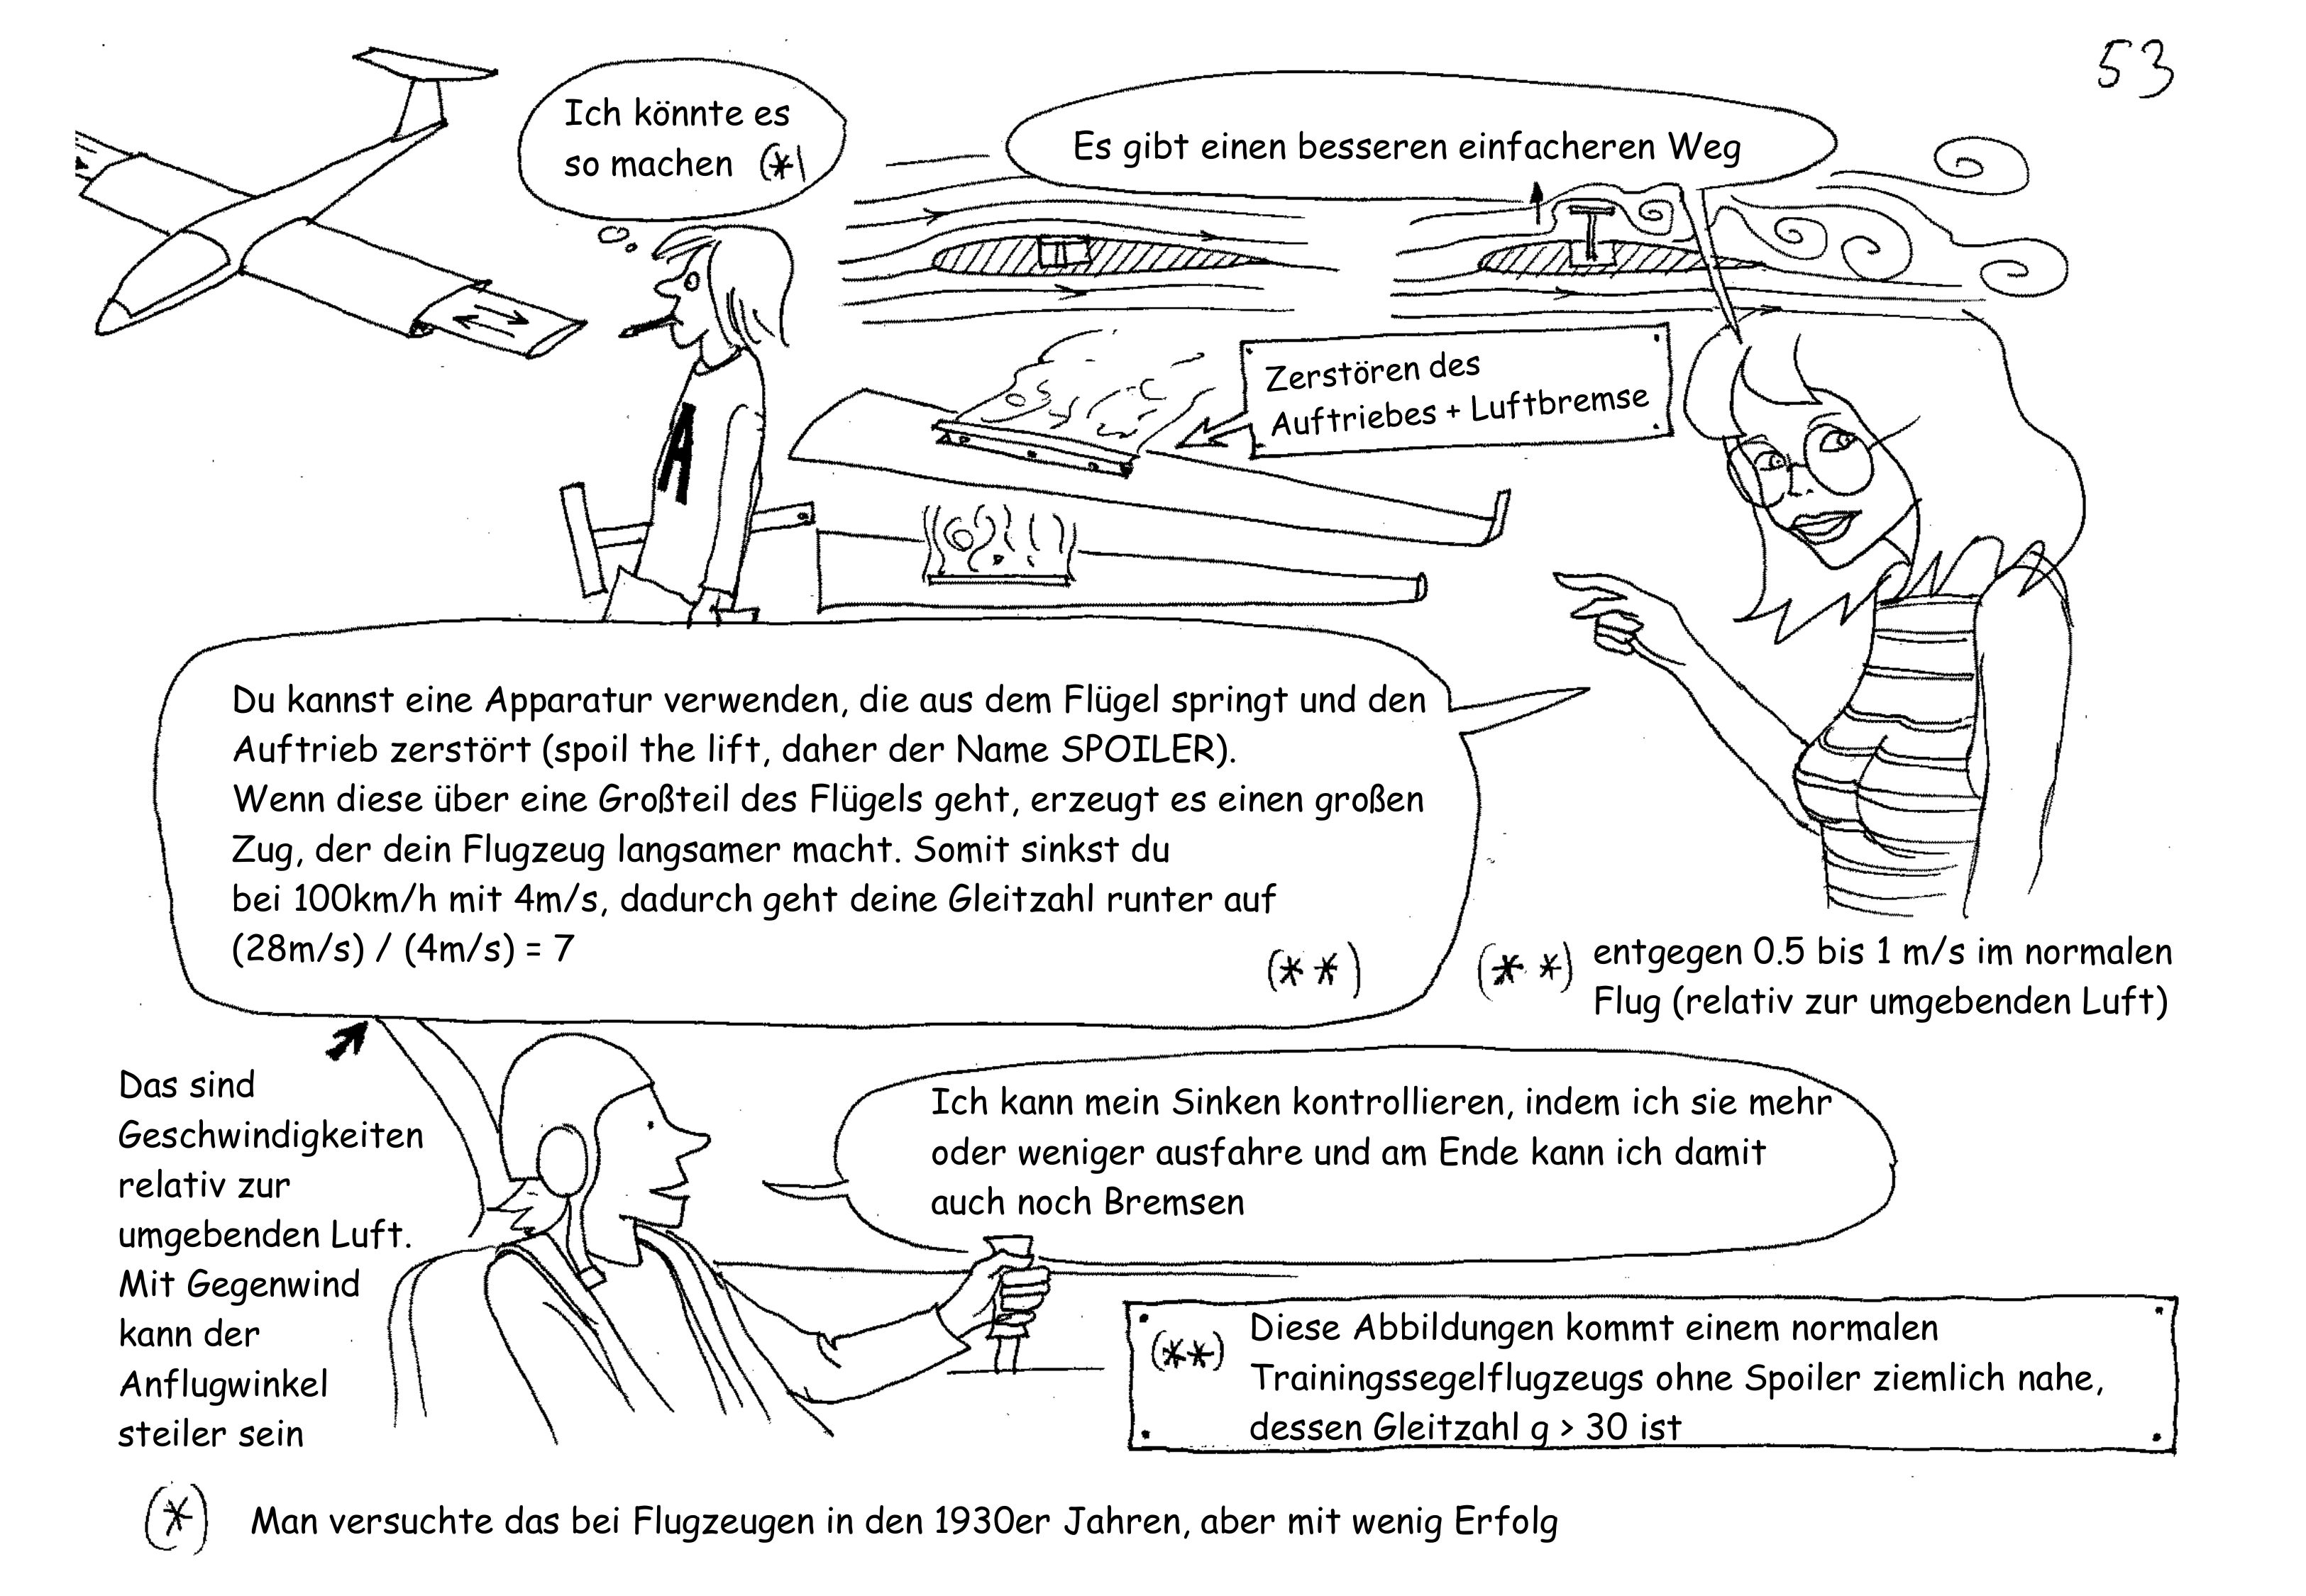 53
Ich könnte es
so machen (*)
Es gibt einen besseren einfacheren Weg
Zerstören des
Auftriebes + Luftbremse
A
Du kannst eine Apparatur verwenden, die aus dem Flügel springt und den
Auftrieb zerstört (spoil the lift, daher der Name SPOILER).
Wenn diese über eine Großteil des Flügels geht, erzeugt es einen großen
Zug, der dein Flugzeug langsamer macht. Somit sinkst du
bei 100km/h mit 4m/s, dadurch geht deine Gleitzahl runter auf
(28m/s) / (4m/s) = 7
(**)
(**) entgegen 0.5 bis 1 m/s im normalen
Flug (relativ zur umgebenden Luft)
Das sind
Geschwindigkeiten
relativ zur
umgebenden Luft.
Mit Gegenwind
kann der
Anflugwinkel
steiler sein
Ich kann mein Sinken kontrollieren, indem ich sie mehr
oder weniger ausfahre und am Ende kann ich damit
auch noch Bremsen
(**) Diese Abbildungen kommt einem normalen
Trainingssegelflugzeugs ohne Spoiler ziemlich nahe,
dessen Gleitzahl g > 30 ist
(*) Man versuchte das bei Flugzeugen in den 1930er Jahren, aber mit wenig Erfolg